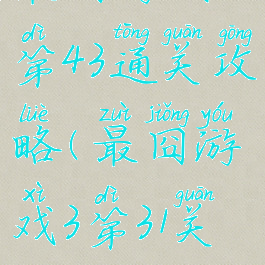 dì tōng guān gōng
第43通关攻
lüè zuì jiǒng yóu
略(最囧游
xì dì guān
戏3第31关